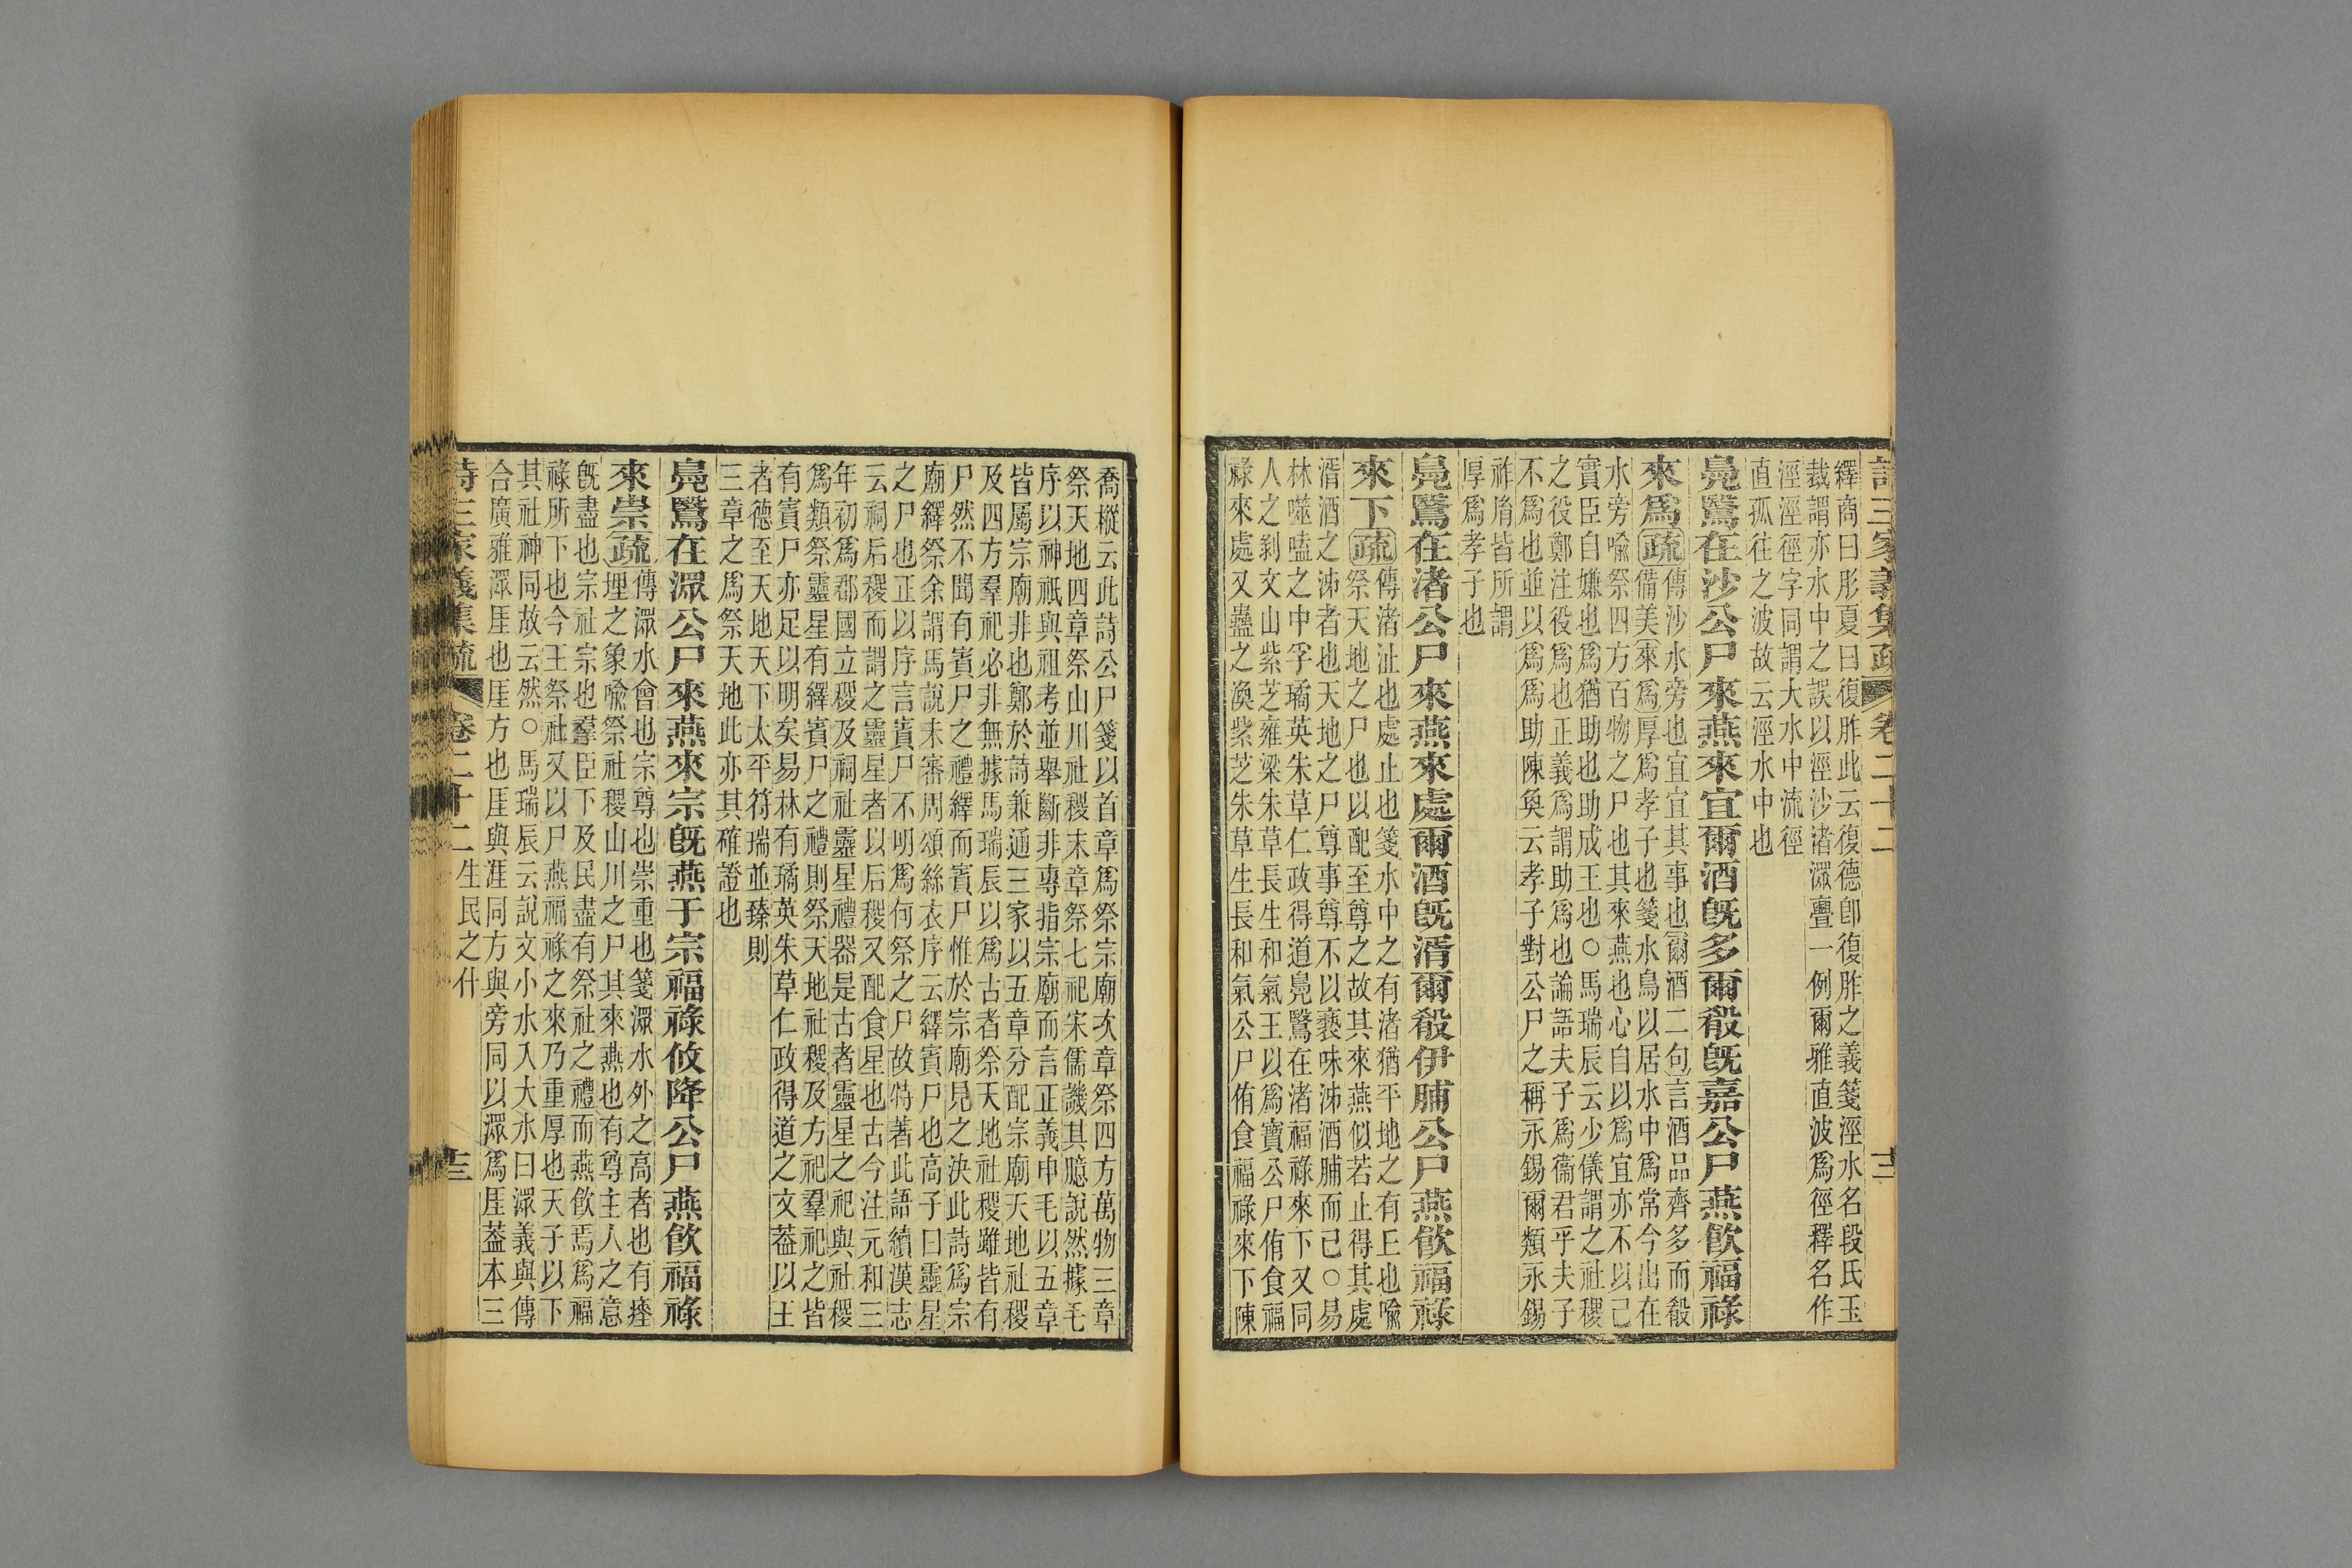 詩三家義集疏 卷二十二 十二
繹商曰肜夏曰復胙此云復德卽復胙之義箋涇水名段氏玉
裁謂亦水中之誤以涇沙渚潀亹一例爾雅直波爲徑釋名作
涇涇徑字同謂大水中流徑
直孤往之波故云涇水中也
鳧鷖在沙公尸來燕來宜爾酒旣多爾殽旣嘉公尸燕飮福祿
來爲疏
傳沙水旁也宜宜其事也爾酒二句言酒品齊多而殽
備美來爲厚爲孝子也箋水鳥以居水中爲常今出在
水旁喻祭四方百物之尸也其來燕也心自以爲宜亦不以己
實臣自嫌也爲猶助也助成王也○馬瑞辰云少儀謂之社稷
之役鄭注役爲也正義爲謂助爲也論語夫子爲衞君乎夫子
不爲也並以爲爲助陳奐云孝子對公尸之稱永錫爾類永錫
祚胤皆所謂
厚爲孝子也
鳧鷖在渚公尸來燕來處爾酒旣湑爾殽伊脯公尸燕飮福祿
來下疏
傳渚沚也處止也箋水中之有渚猶平地之有丘也喻
祭天地之尸也以配至尊之故其來燕似若止得其處
湑酒之泲者也天地之尸尊事尊不以褻味泲酒脯而已○易
林噬嗑之中孚璚英朱草仁政得道鳧鷖在渚福祿來下又同
人之剝文山紫芝雍梁朱草長生和氣王以爲寶公尸侑食福
祿來處又蠱之渙紫芝朱草生長和氣公尸侑食福祿來下陳
喬樅云此詩公尸箋以首章爲祭宗廟次章祭四方萬物三章
祭天地四章祭山川社稷末章祭七祀宋儒譏其臆說然據毛
序以神祇與祖考並舉斷非專指宗廟而言正義中毛以五章
皆屬宗廟非也鄭於詩兼通三家以五章分配宗廟天地社稷
及四方羣祀必非無據馬瑞辰以爲古者祭天地社稷雖皆有
尸然不聞有賓尸之禮繹而賓尸惟於宗廟見之決此詩爲宗
廟繹祭余謂馬說未審周頌絲衣序云繹賓尸也高子曰靈星
之尸也正以序言賓尸不明爲何祭之尸故特著此語續漢志
云祠后稷而謂之靈星者以后稷又配食星也古今注元和三
年初爲郡國立稷及祠社靈星禮器是古者靈星之祀與社稷
爲類祭靈星有繹賓尸之禮則祭天地社稷及方祀羣祀之皆
有賓尸亦足以明矣易林有璚英朱草仁政得道之文蓋以王
者德至天地天下太平符瑞並臻則
三章之爲祭天地此亦其確證也
鳧鷖在潀公尸來燕來宗旣燕于宗福祿攸降公尸燕飮福祿
來崇疏
傳潀水會也宗尊也崇重也箋潀水外之高者也有瘞
埋之象喻祭社稷山川之尸其來燕也有尊主人之意
旣盡也宗社宗也羣臣下及民盡有祭社之禮而燕飮焉爲福
祿所下也今王祭社又以尸燕福祿之來乃重厚也天子以下
其社神同故云然○馬瑞辰云說文小水入大水曰潀義與傳
合廣雅潀厓也厓方也厓與涯同方與旁同以潀爲厓蓋本三
詩三家義集疏 卷二十二 生民之什 十三